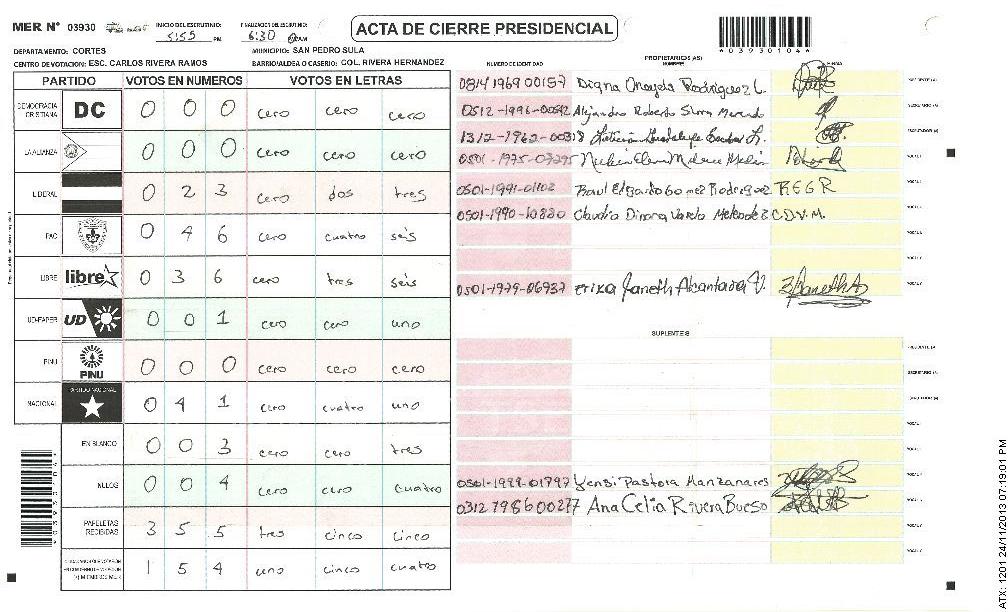 MER N° 03930
INICIO DEL ESCRUTINIO: 5:55 PM
FINALIZACION DEL ESCRUTINIO: 6:30
ACTA DE CIERRE PRESIDENCIAL
*03930104*
DEPARTAMENTO: CORTES
MUNICIPIO: SAN PEDRO SULA
CENTRO DE VOTACION: ESC. CARLOS RIVERA RAMOS
BARRIO/ALDEA O CASERIO: COL. RIVERA HERNANDEZ
PARTIDO VOTOS EN NUMEROS VOTOS EN LETRAS
DEMOCRACIA CRISTIANA DC 0 0 0 cero cero cero
LA ALIANZA 0 0 0 cero cero cero
LIBERAL 0 2 3 cero dos tres
PAC 0 4 6 cero cuatro seis
LIBRE libre 0 3 6 cero tres seis
UD-FAPER UD 0 0 1 cero cero uno
PINU PINU 0 0 0 cero cero cero
NACIONAL PARTIDO NACIONAL 0 4 1 cero cuatro uno
EN BLANCO 0 0 3 cero cero tres
NULOS 0 0 4 cero cero cuatro
PAPELETAS RECIBIDAS 3 5 5 tres cinco cinco
1 5 4 uno cinco cuatro
PROPIETARIOS(AS)
NUMERO DE IDENTIDAD NOMBRE FIRMA
0814 1969 00157 Digna Rodriguez L.
0512-1996-00542 Alejandro Roberto
1312-1962-00318
0501-1975-07295
0501-1991-01102 Raul Edgardo Gomez Rodriguez R.E.G.R
0501-1990-10880 Claudia Varela Melendez C.D.V.M.
0501-1979-06937 Erika Janeth Alcantara V.
SUPLENTES
0501-1988-01797 Yensi Pastora Manzanares
0312 1986 00277 Ana Celia Rivera Bueso
ATX: 1201 24/11/2013 07:19:01 PM